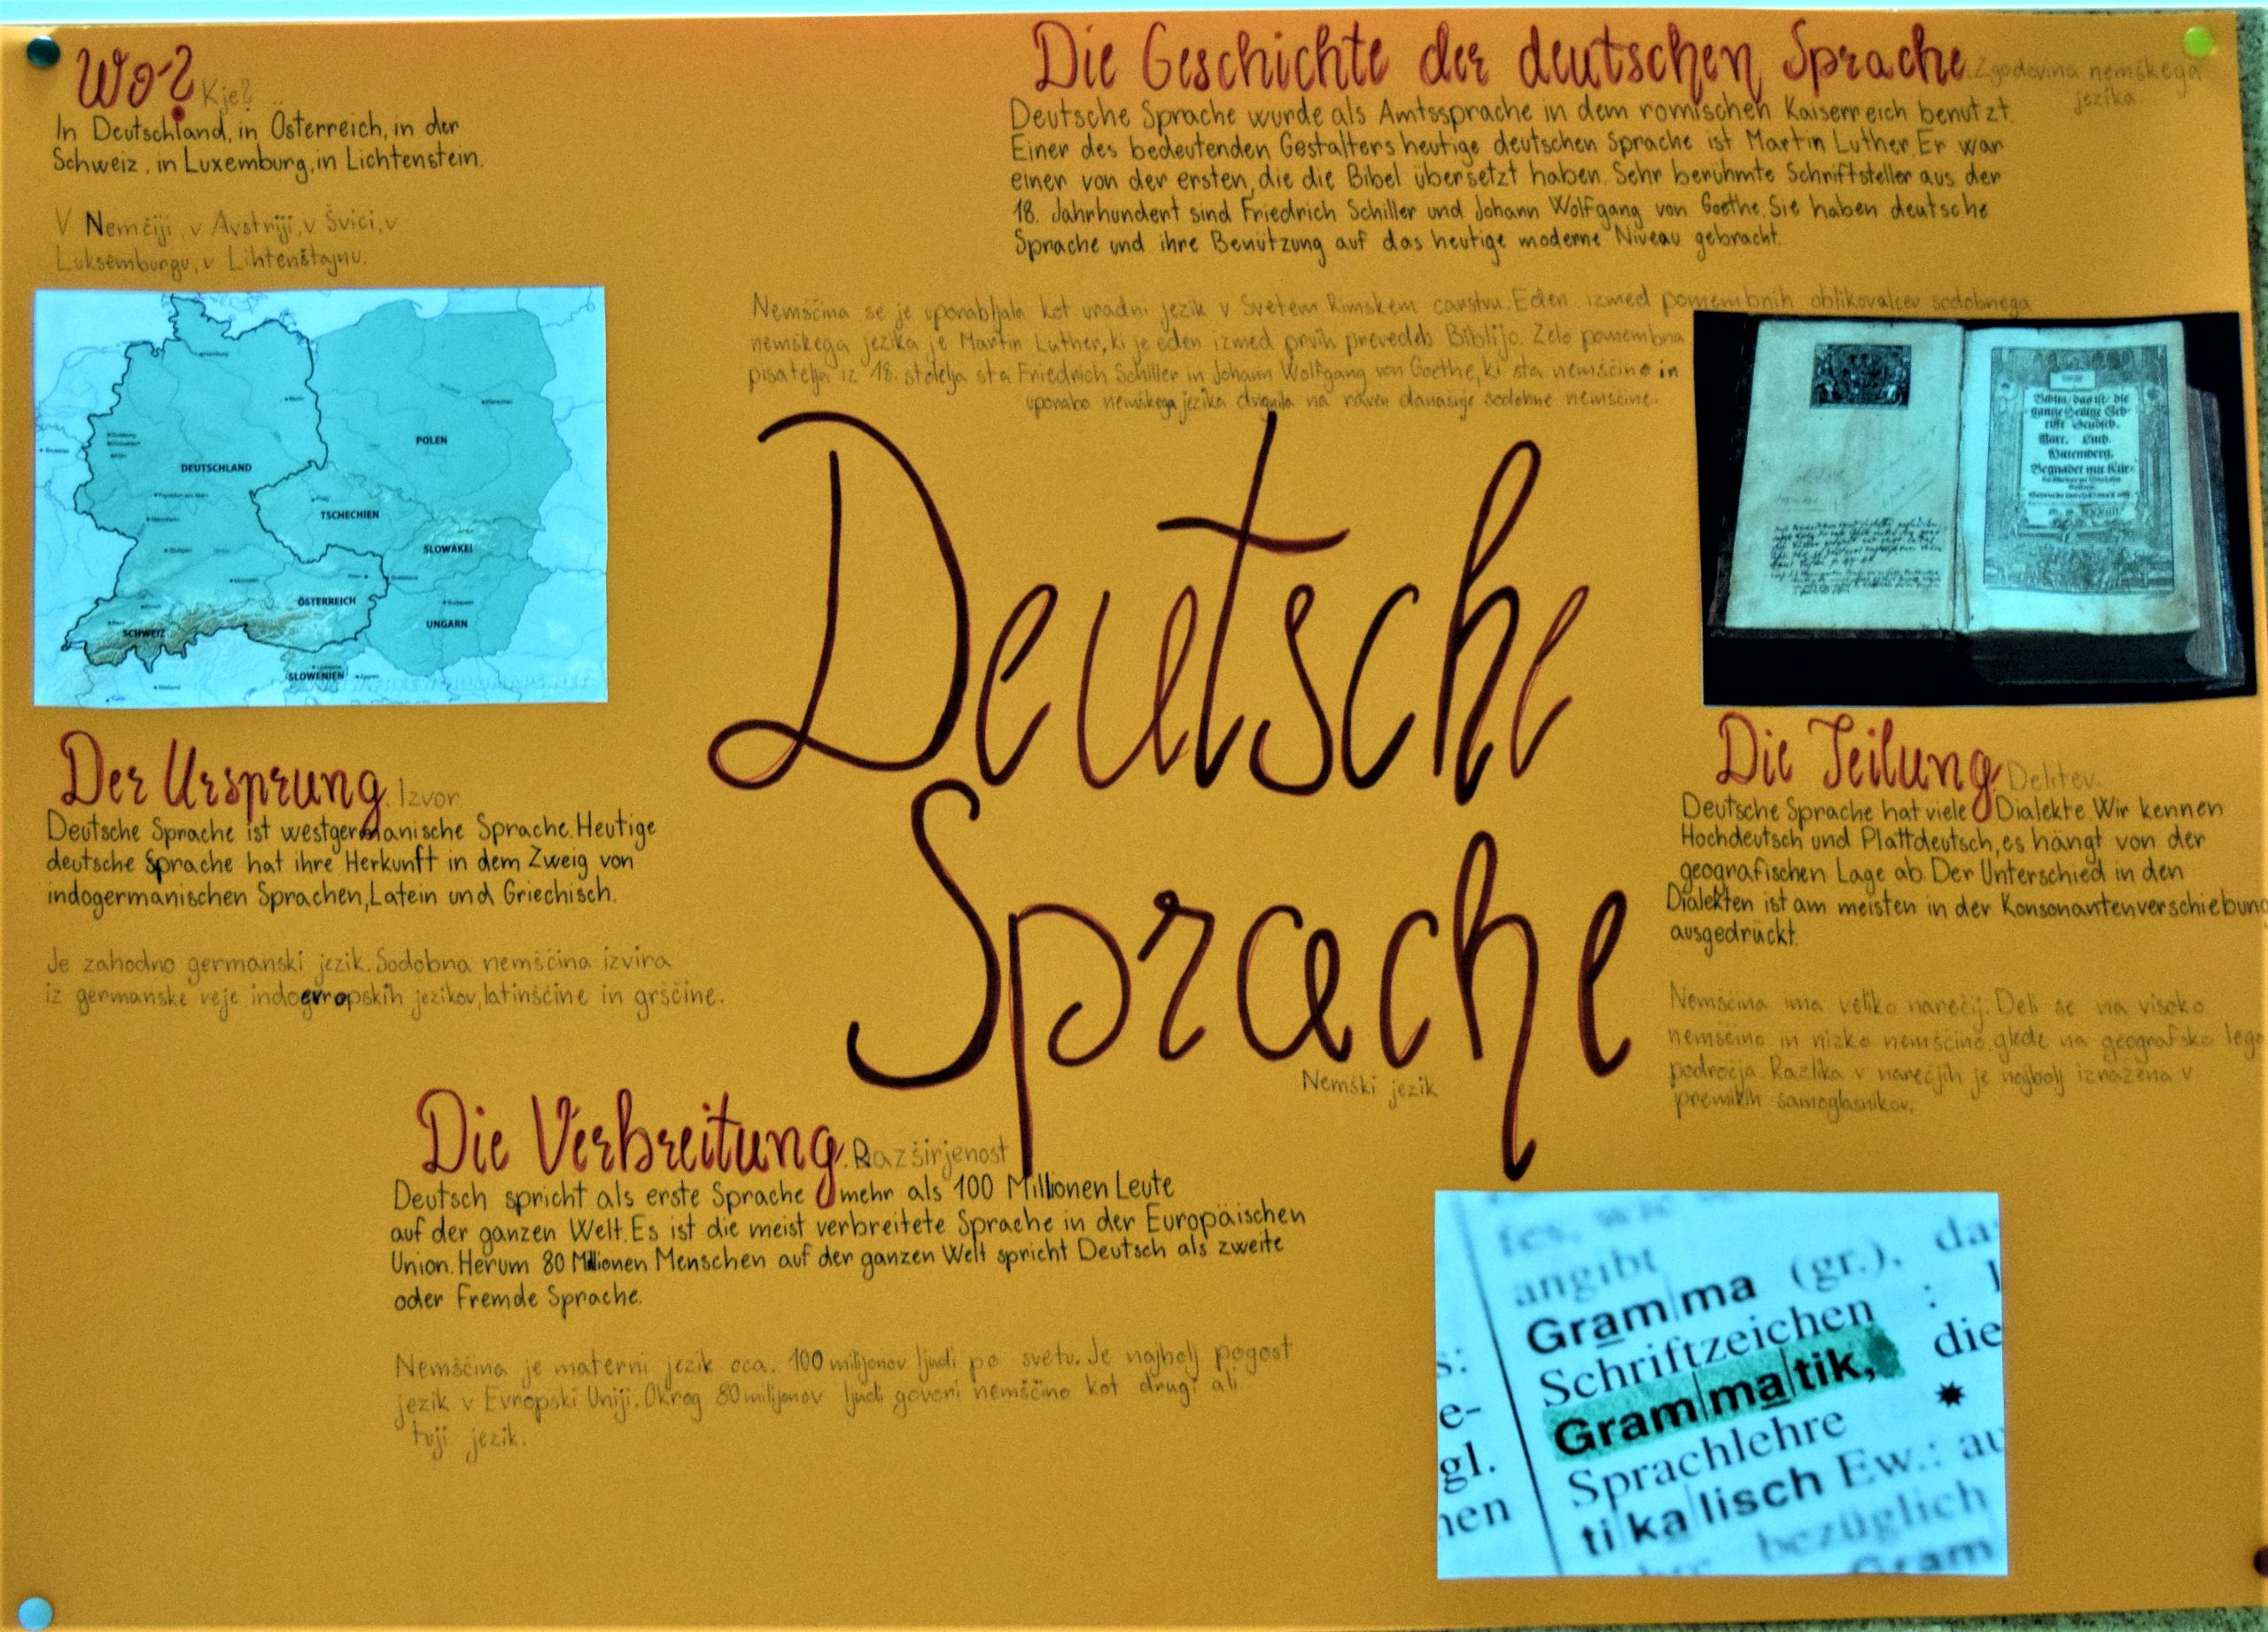 Wo? Kje?
In Deutschland, in Österreich, in der
Schweiz, in Luxemburg, in Lichtenstein.
V Nemčiji, v Avstriji, v Švici, v
Luksemburgu, v Lihtenštajnu.
DEUTSCHLAND
POLEN
TSCHECHIEN
SLOWAKEI
ÖSTERREICH
SCHWEIZ
UNGARN
SLOWENIEN
Die Geschichte der deutschen Sprache. Zgodovina nemškega
jezika.
Deutsche Sprache wurde als Amtssprache in dem romischen Kaiserreich benutzt.
Einer des bedeutenden Gestalters heutige deutschen Sprache ist Martin Luther. Er war
einer von der ersten, die die Bibel übersetzt haben. Sehr berühmte Schriftsteller aus der
18. Jahrhundert sind Friedrich Schiller und Johann Wolfgang von Goethe. Sie haben deutsche
Sprache und ihre Benützung auf das heutige moderne Niveau gebracht.
Nemščina se je uporabljala kot uradni jezik v Svetem Rimskem carstvu. Eden izmed pomembnih oblikovalcev sodobnega
nemškega jezika je Martin Luther, ki je eden izmed prvih prevedeb Biblijo. Zelo pomembna
pisatelja iz 18. stoletja sta Friedrich Schiller in Johann Wolfgang von Goethe, ki sta nemščino in
uporabo nemškega jezika dvignila na raven današnje sodobne nemščine.
Biblia / das ist / die
gantze Heilige Sch-
rifft Deudsch.
Mart. Luth.
Wittemberg.
Begnadet mit Kür-
Deutsche
Sprache
Nemški jezik
Der Ursprung. Izvor
Deutsche Sprache ist westgermanische Sprache. Heutige
deutsche Sprache hat ihre Herkunft in dem Zweig von
indogermanischen Sprachen, Latein und Griechisch.
Je zahodno germanski jezik. Sodobna nemščina izvira
iz germanske veje indoevropskih jezikov, latinščine in grščine.
Die Teilung Delitev.
Deutsche Sprache hat viele Dialekte. Wir kennen
Hochdeutsch und Plattdeutsch, es hängt von der
geografischen Lage ab. Der Unterschied in den
Dialekten ist am meisten in der Konsonantenverschiebung
ausgedrückt.
Nemščina ima veliko narečij. Deli se na visoko
nemščino in nizko nemščino, glede na geografsko lego
področja. Razlika v narečjih je najbolj izražena v
premikih samoglasnikov.
Die Verbreitung. Razširjenost
Deutsch spricht als erste Sprache mehr als 100 Millionen Leute
auf der ganzen Welt. Es ist die meist verbreitete Sprache in der Europäischen
Union. Herum 80 Millionen Menschen auf der ganzen Welt spricht Deutsch als zweite
oder fremde Sprache.
Nemščina je materni jezik cca. 100 milijonov ljudi po svetu. Je najbolj pogost
jezik v Evropski Uniji. Okrog 80 milijonov ljudi govori nemščino kot drugi ali
tuji jezik.
angibt
Gram|ma (gr.), da
Schriftzeichen :
Gram|ma|tik, die
Sprachlehre
ti|ka|lisch Ew.: au
bezüglich
Gram
s:
e-
gl.
nen